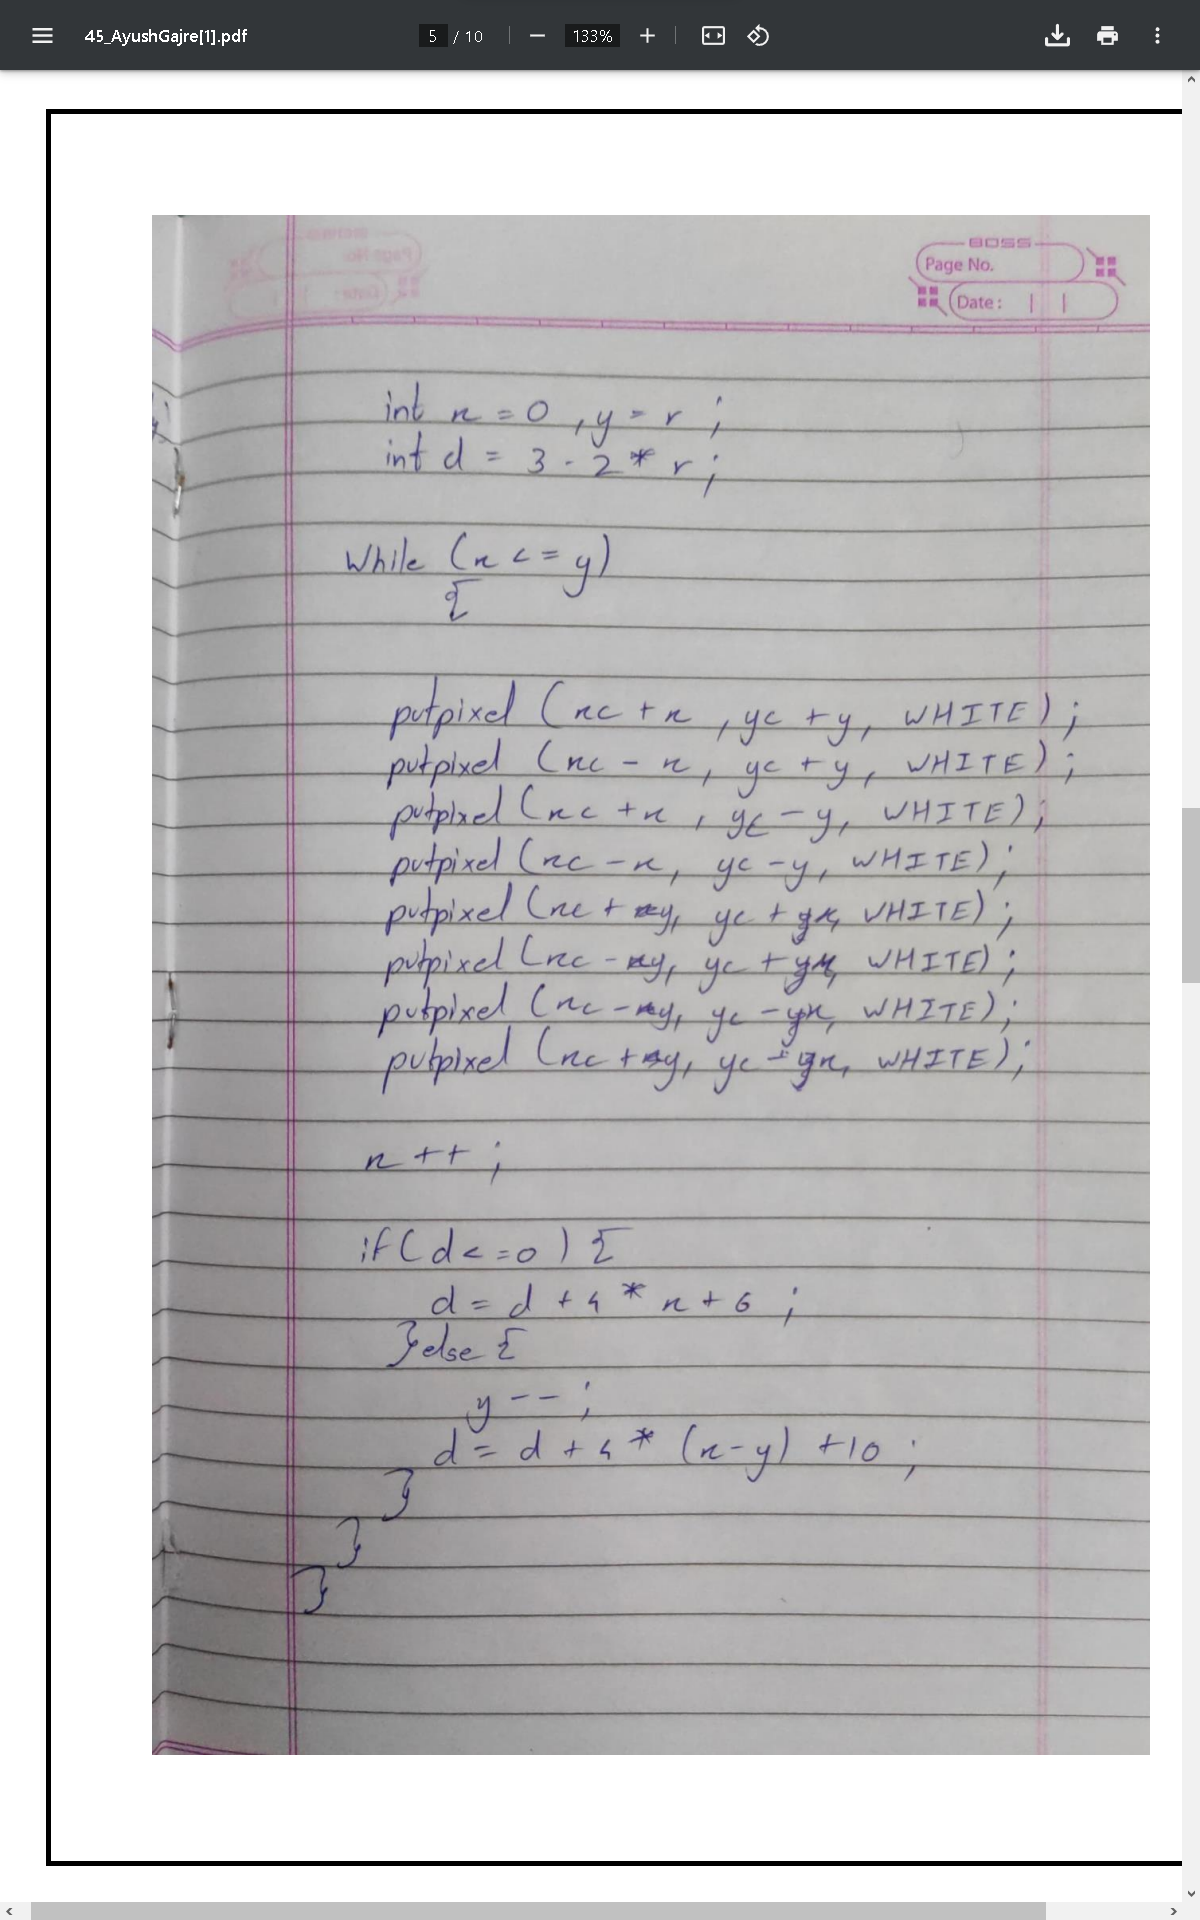 45_AyushGajre[1].pdf
5 / 10
133%
BOSS
Page No.
Date :
int x = 0 , y = r ;
int d = 3 - 2 * r ;
While (x <= y)
{
putpixel (xc + x , yc + y, WHITE) ;
putpixel (xc - x, yc + y, WHITE) ;
putpixel (xc + x , yc - y, WHITE) ;
putpixel (xc - x, yc - y, WHITE) ;
putpixel (xc + y, yc + x, WHITE) ;
putpixel (xc - y, yc + x, WHITE) ;
putpixel (xc - y, yc - x, WHITE) ;
putpixel (xc + y, yc - x, WHITE) ;
x ++ ;
if ( d <= 0 ) {
d = d + 4 * x + 6 ;
} else {
y -- ;
d = d + 4 * (x - y) + 10 ;
}
}
}